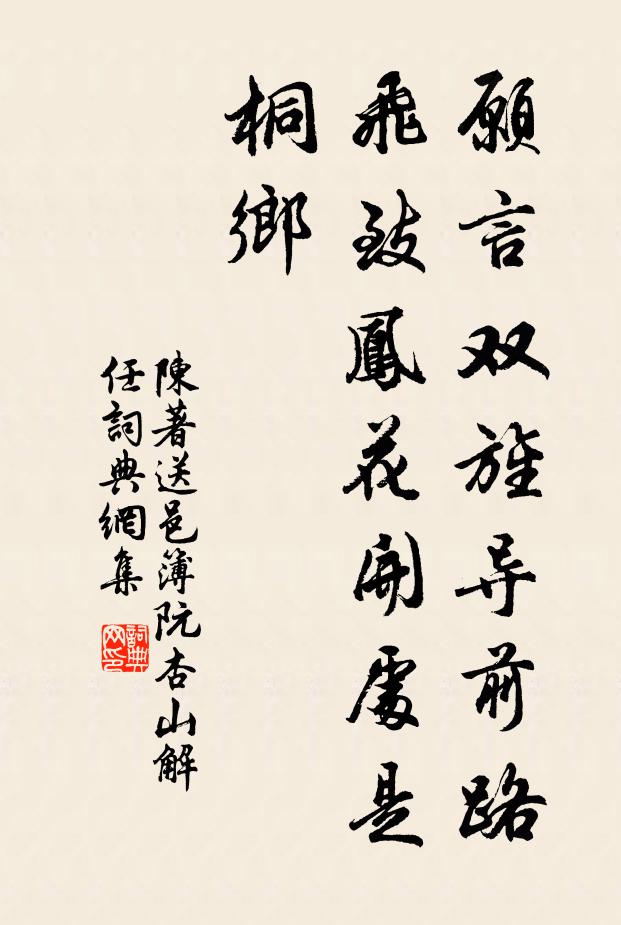 願言双旌导前路
飛致鳳花開處是
桐鄉
陳著送邑簿阮杏山解
任詞典網集
詞典网印